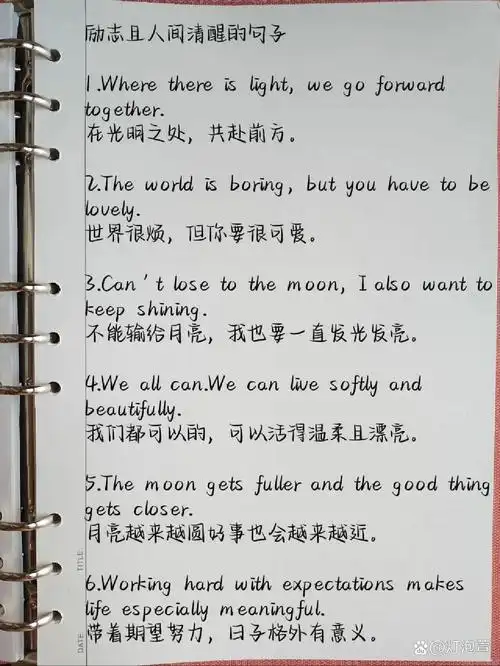 励志且人间清醒的句子
1.Where there is light, we go forward
together.
在光明之处，共赴前方。
2.The world is boring, but you have to be
lovely.
世界很烦，但你要很可爱。
3.Can't lose to the moon, I also want to
keep shining.
不能输给月亮，我也要一直发光发亮。
4.We all can.We can live softly and
beautifully.
我们都可以的，可以活得温柔且漂亮。
5.The moon gets fuller and the good thing
gets closer.
月亮越来越圆好事也会越来越近。
6.Working hard with expectations makes
life especially meaningful.
带着期望努力，日子格外有意义。
TITLE:
DATE:
Bai百科@灯泡营